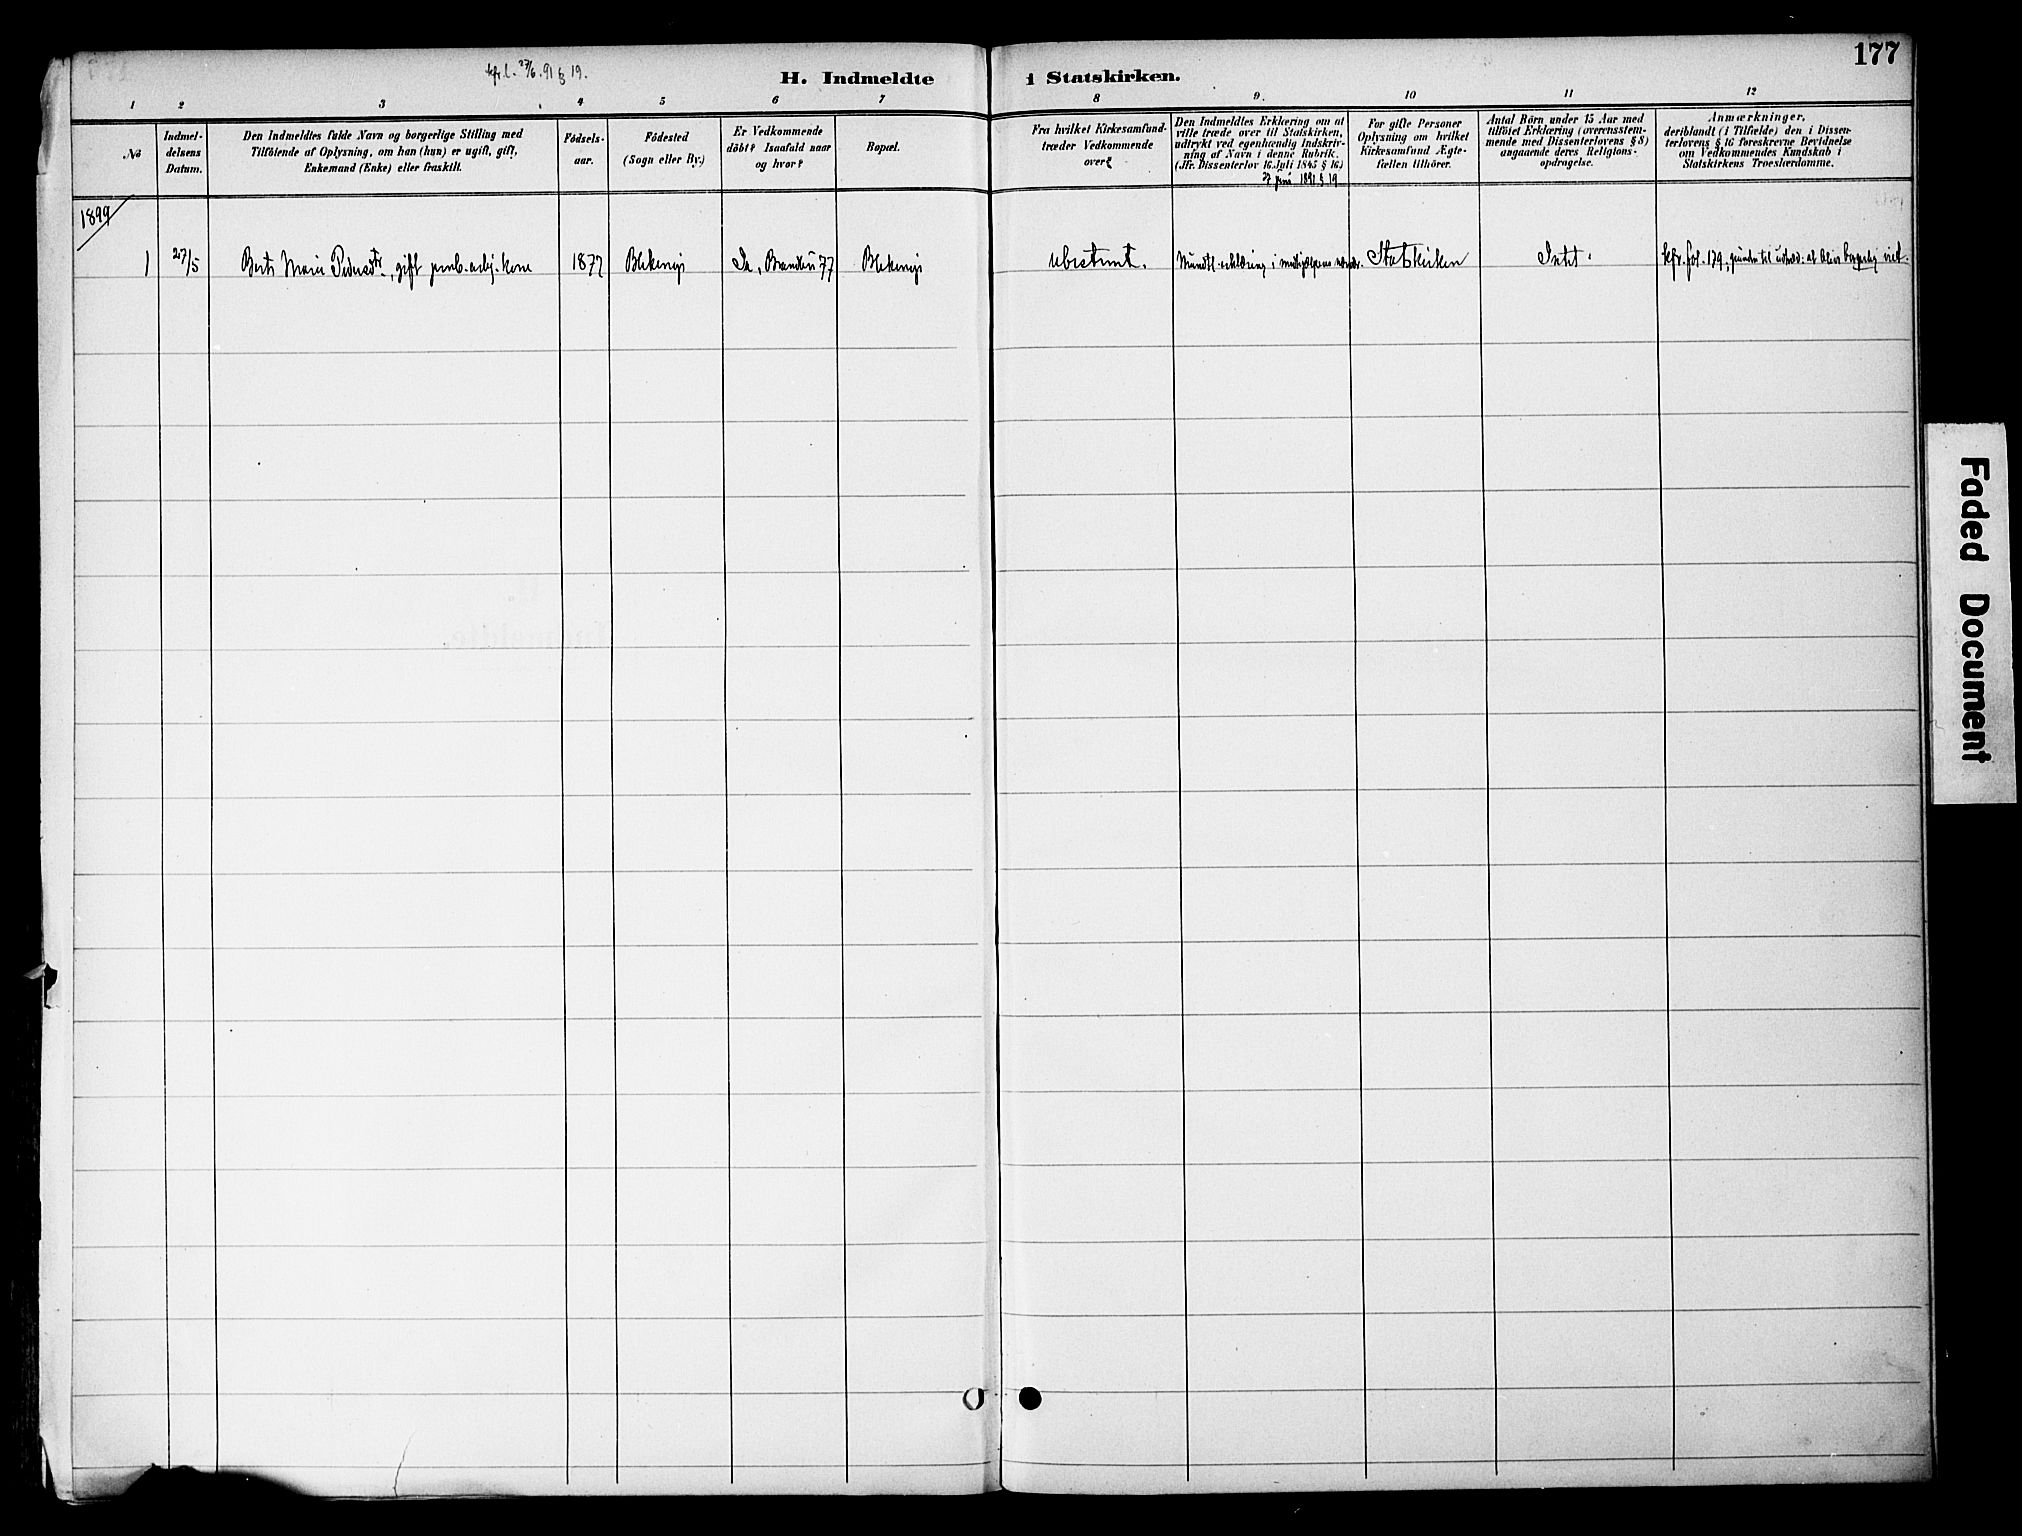 177
kfr. l. 27/6. 91 § 19.
H. Indmeldte i Statskirken.
1 2 3 4 5 6 7 8 9. 10 11 12
No
Indmel-
delsens
Datum.
Den Indmeldtes fulde Navn og borgerlige Stilling med
Tilföiende af Oplysning, om han (hun) er ugift, gift,
Enkemand (Enke) eller fraskilt.
Födsels-
aar.
Födested
(Sogn eller By.)
Er Vedkommende
döbt? Isaafald naar
og hvor?
Bopæl.
Fra hvilket Kirkesamfund-
træder Vedkommende
over?
Den Indmeldtes Erklæring om at
ville træde over til Statskirken,
udtrykt ved egenhændig Indskriv-
ning af Navn i denne Rubrik.
(Jfr. Dissenterlov 16 Juli 1845 § 16.)
27 Juni 1891 § 19
For gifte Personer
Oplysning om hvilket
Kirkesamfund Ægte-
fællen tilhörer.
Antal Börn under 15 Aar med
tilföiet Erklæring (overensstem-
mende med Dissenterlovens § 8)
angaaende deres Religions-
opdragelse.
Anmærkninger,
deriblandt (i Tilfælde) den i Dissen-
terlovens § 16 foreskrevne Bevidnelse
om Vedkommendes Kundskab i
Statskirkens Troeslærdomme.
1899
1 27/5 Berte Marie Pedersdtr., gift 1877 Ja, Branden 77 ubestemt. Mundtl. erklæring i Statskirken Intet. kfr. fol. 179, til at blive borgerlig viet.
Faded Document